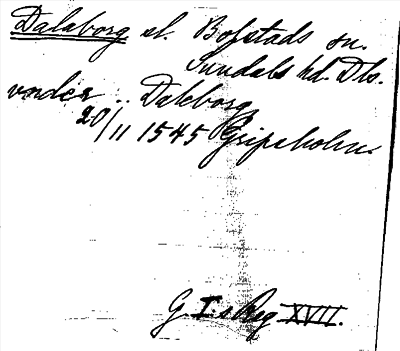 Dalaborg sl. Bolstads sn.
Sundals hd. Dls.
vnder .. Daleborg
20/11 1545 Gripsholm
G. I:s Reg XVII.